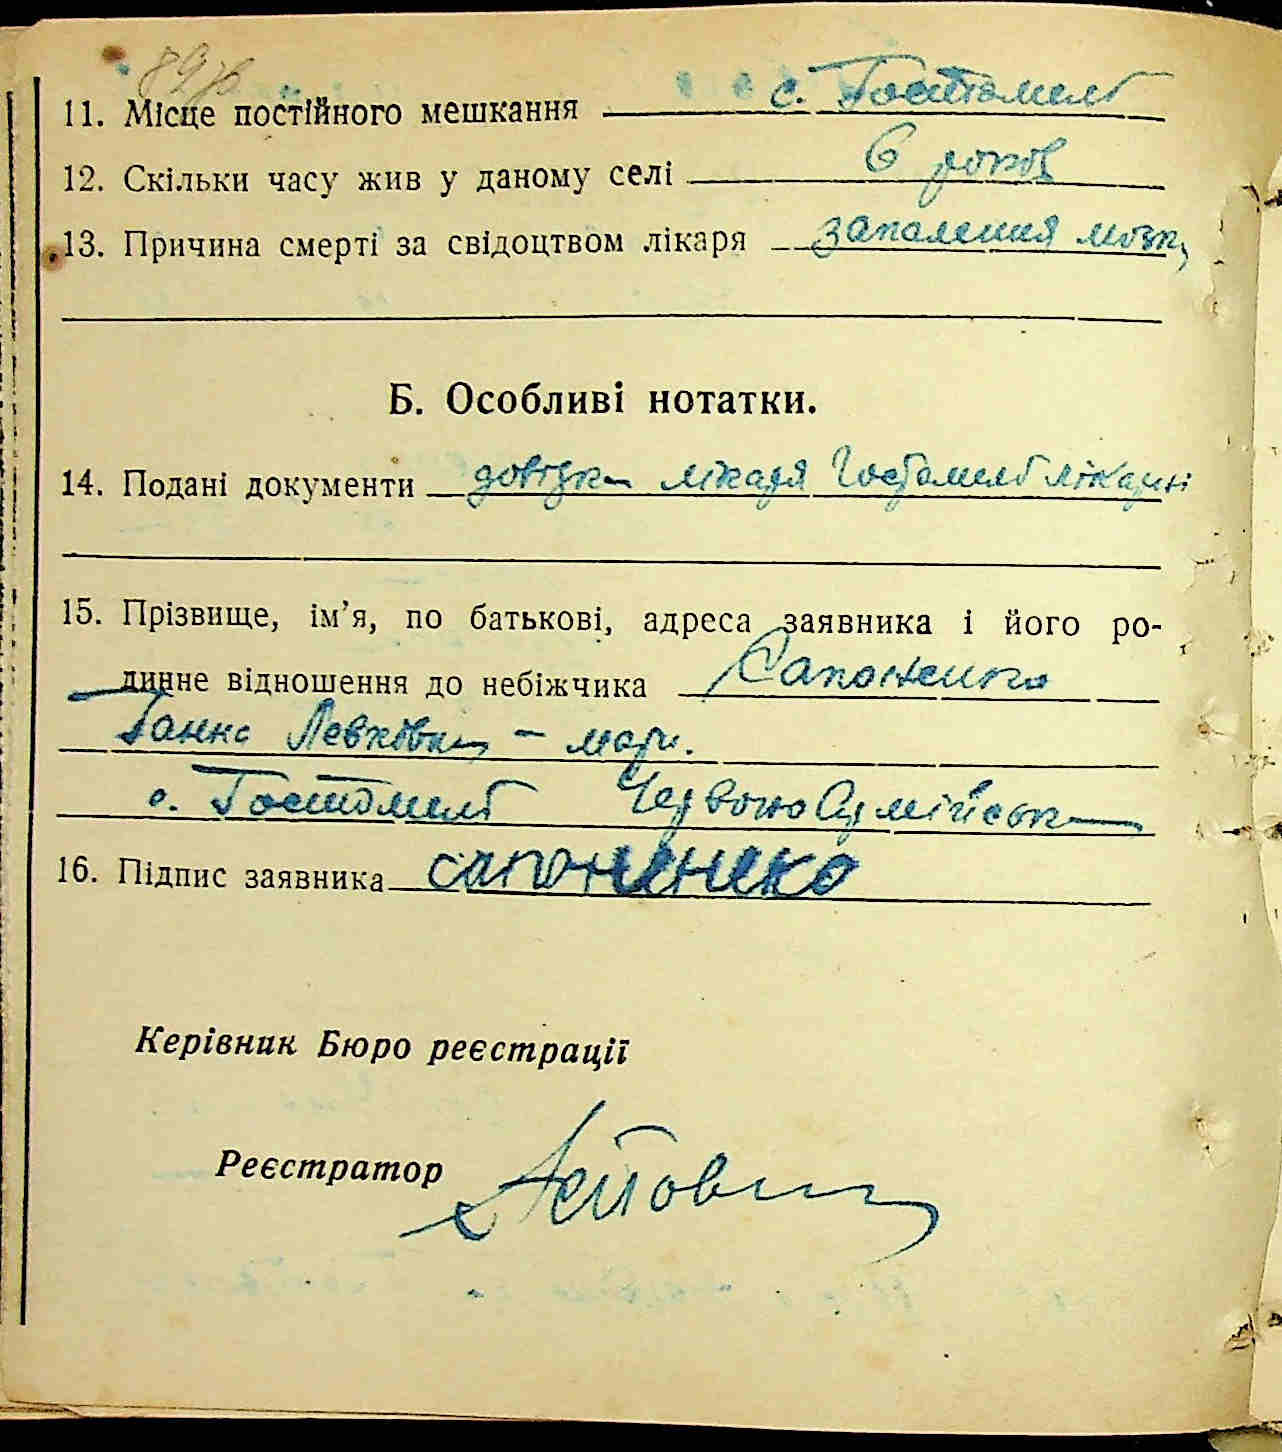 89зв
11. Місце постійного мешкання с. Гостомель
12. Скільки часу жив у даному селі 6 років
13. Причина смерті за свідоцтвом лікаря запалення мозку
Б. Особливі нотатки.
14. Подані документи довідка лікаря Гостомель лікарні
15. Прізвище, ім’я, по батькові, адреса заявника і його ро-
динне відношення до небіжчика Сапоненко
Ганна Левковна – мати.
с. Гостомель ЧервоноАрмійськ
16. Підпис заявника сапоненко
Керівник Бюро реєстрації
Реєстратор